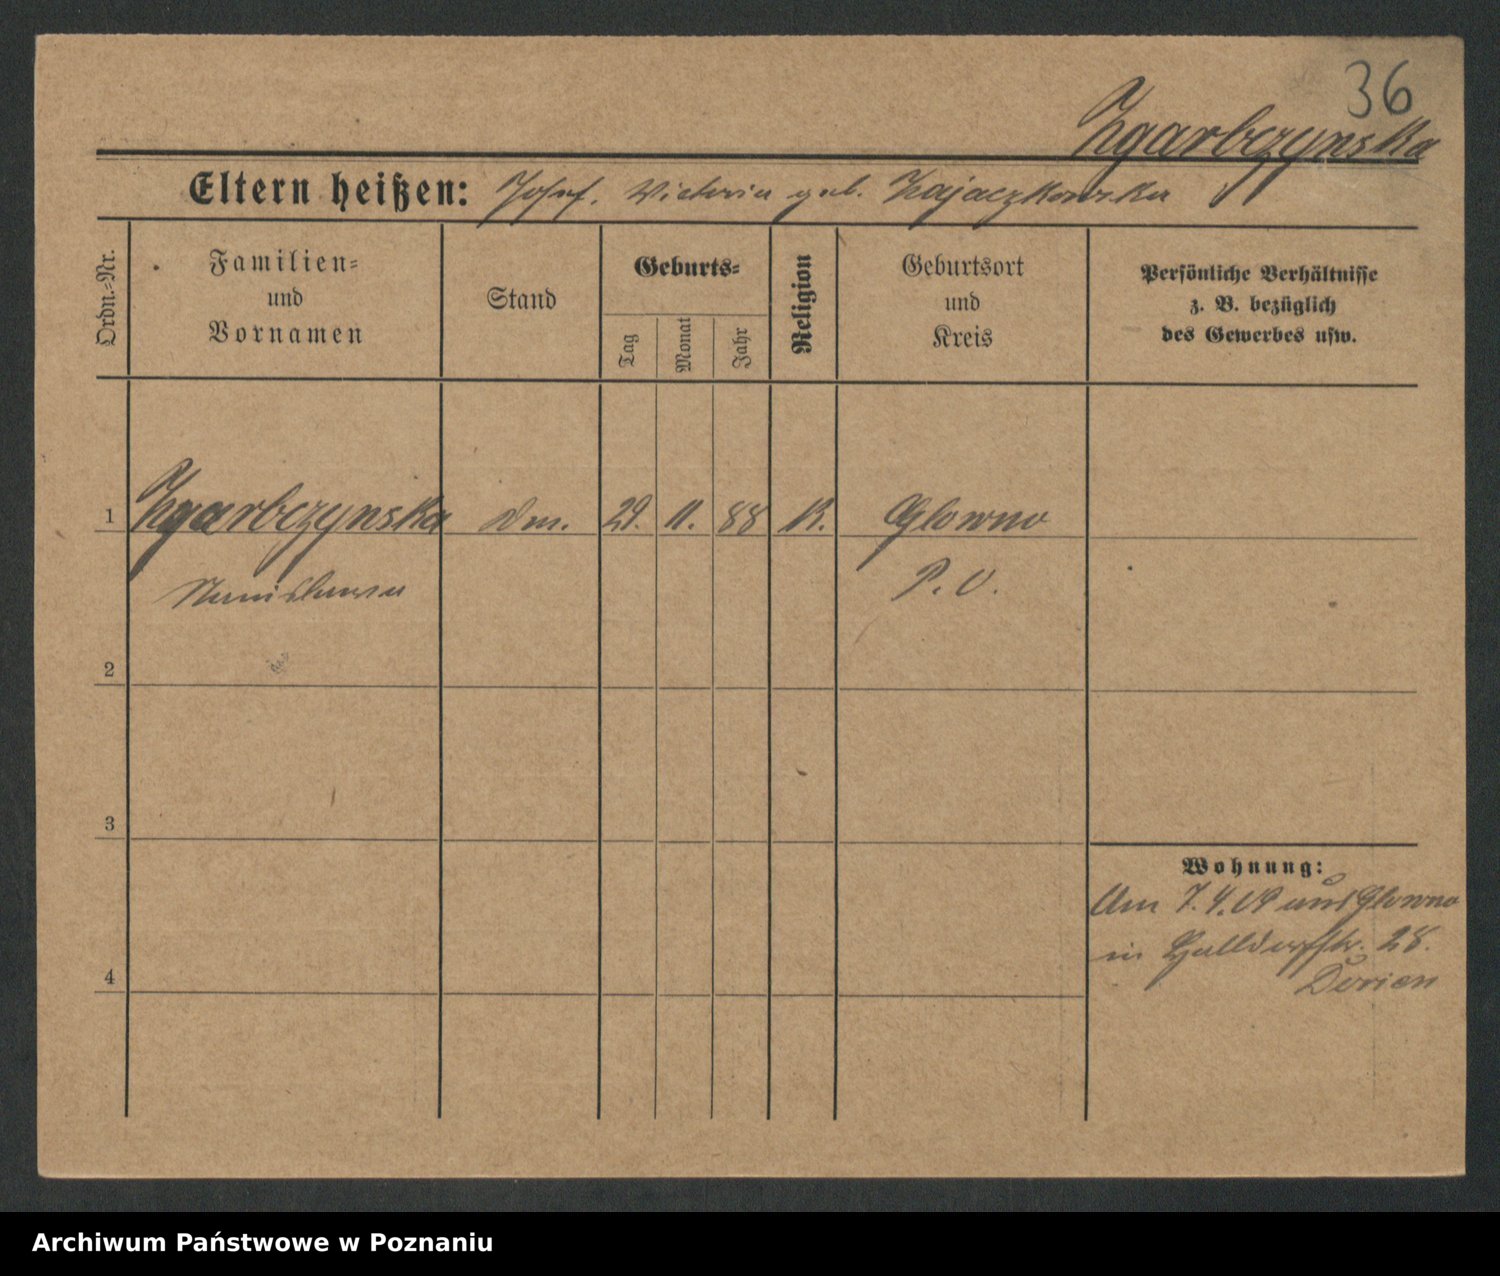 36
Zgarbczynska
Eltern heißen: Josef. Victoria geb. Zajaczkowska
Ordn.-Nr.
Familien-
und
Vornamen
Stand
Geburts-
Tag
Monat
Jahr
Religion
Geburtsort
und
Kreis
Persönliche Verhältnisse
z. B. bezüglich
des Gewerbes usw.
1 Zgarbczynska 29. 11. 88 K. Glowno
Stanislawa P. O.
2
3
4
Wohnung:
Am 7. 4. 19 aus Glowno
in 28.
Archiwum Państwowe w Poznaniu